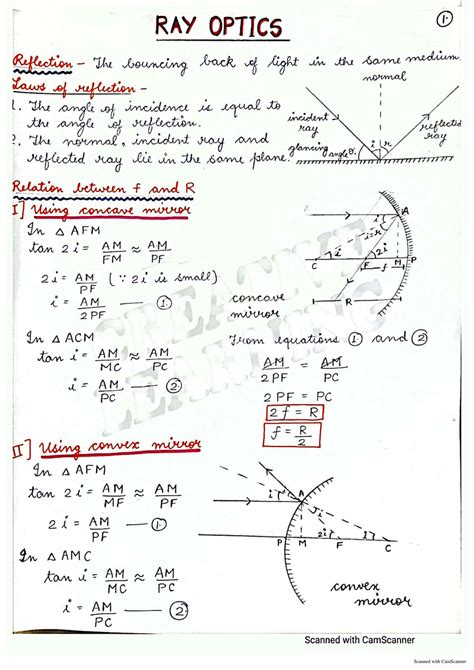 RAY OPTICS
1.
Reflection - The bouncing back of light in the same medium.
Laws of reflection -
1. The angle of incidence is equal to
the angle of reflection.
2. The normal, incident ray and
reflected ray lie in the same plane.
normal
incident
ray
reflected
ray
glancing
angle θ.
i
r
Relation between f and R
I] Using concave mirror
In △ AFM
tan 2i = AM/FM ≈ AM/PF
2i = AM/PF (∵ 2i is small)
i = AM/2PF — ①
In △ ACM
tan i = AM/MC ≈ AM/PC
i = AM/PC — ②
A
i
i=r
C
i
F
2i
M
P
f
R
concave
mirror
From equations ① and ②
AM/2PF = AM/PC
2PF = PC
2f = R
f = R/2
II] Using convex mirror
In △ AFM
tan 2i = AM/MF ≈ AM/PF
2i = AM/PF — ①
In △ AMC
tan i = AM/MC ≈ AM/PC
i = AM/PC — ②
i
A
i
P
M
2i
F
i
C
convex
mirror
CREATIVE
LEARNING
Scanned with CamScanner
Scanned with CamScanner